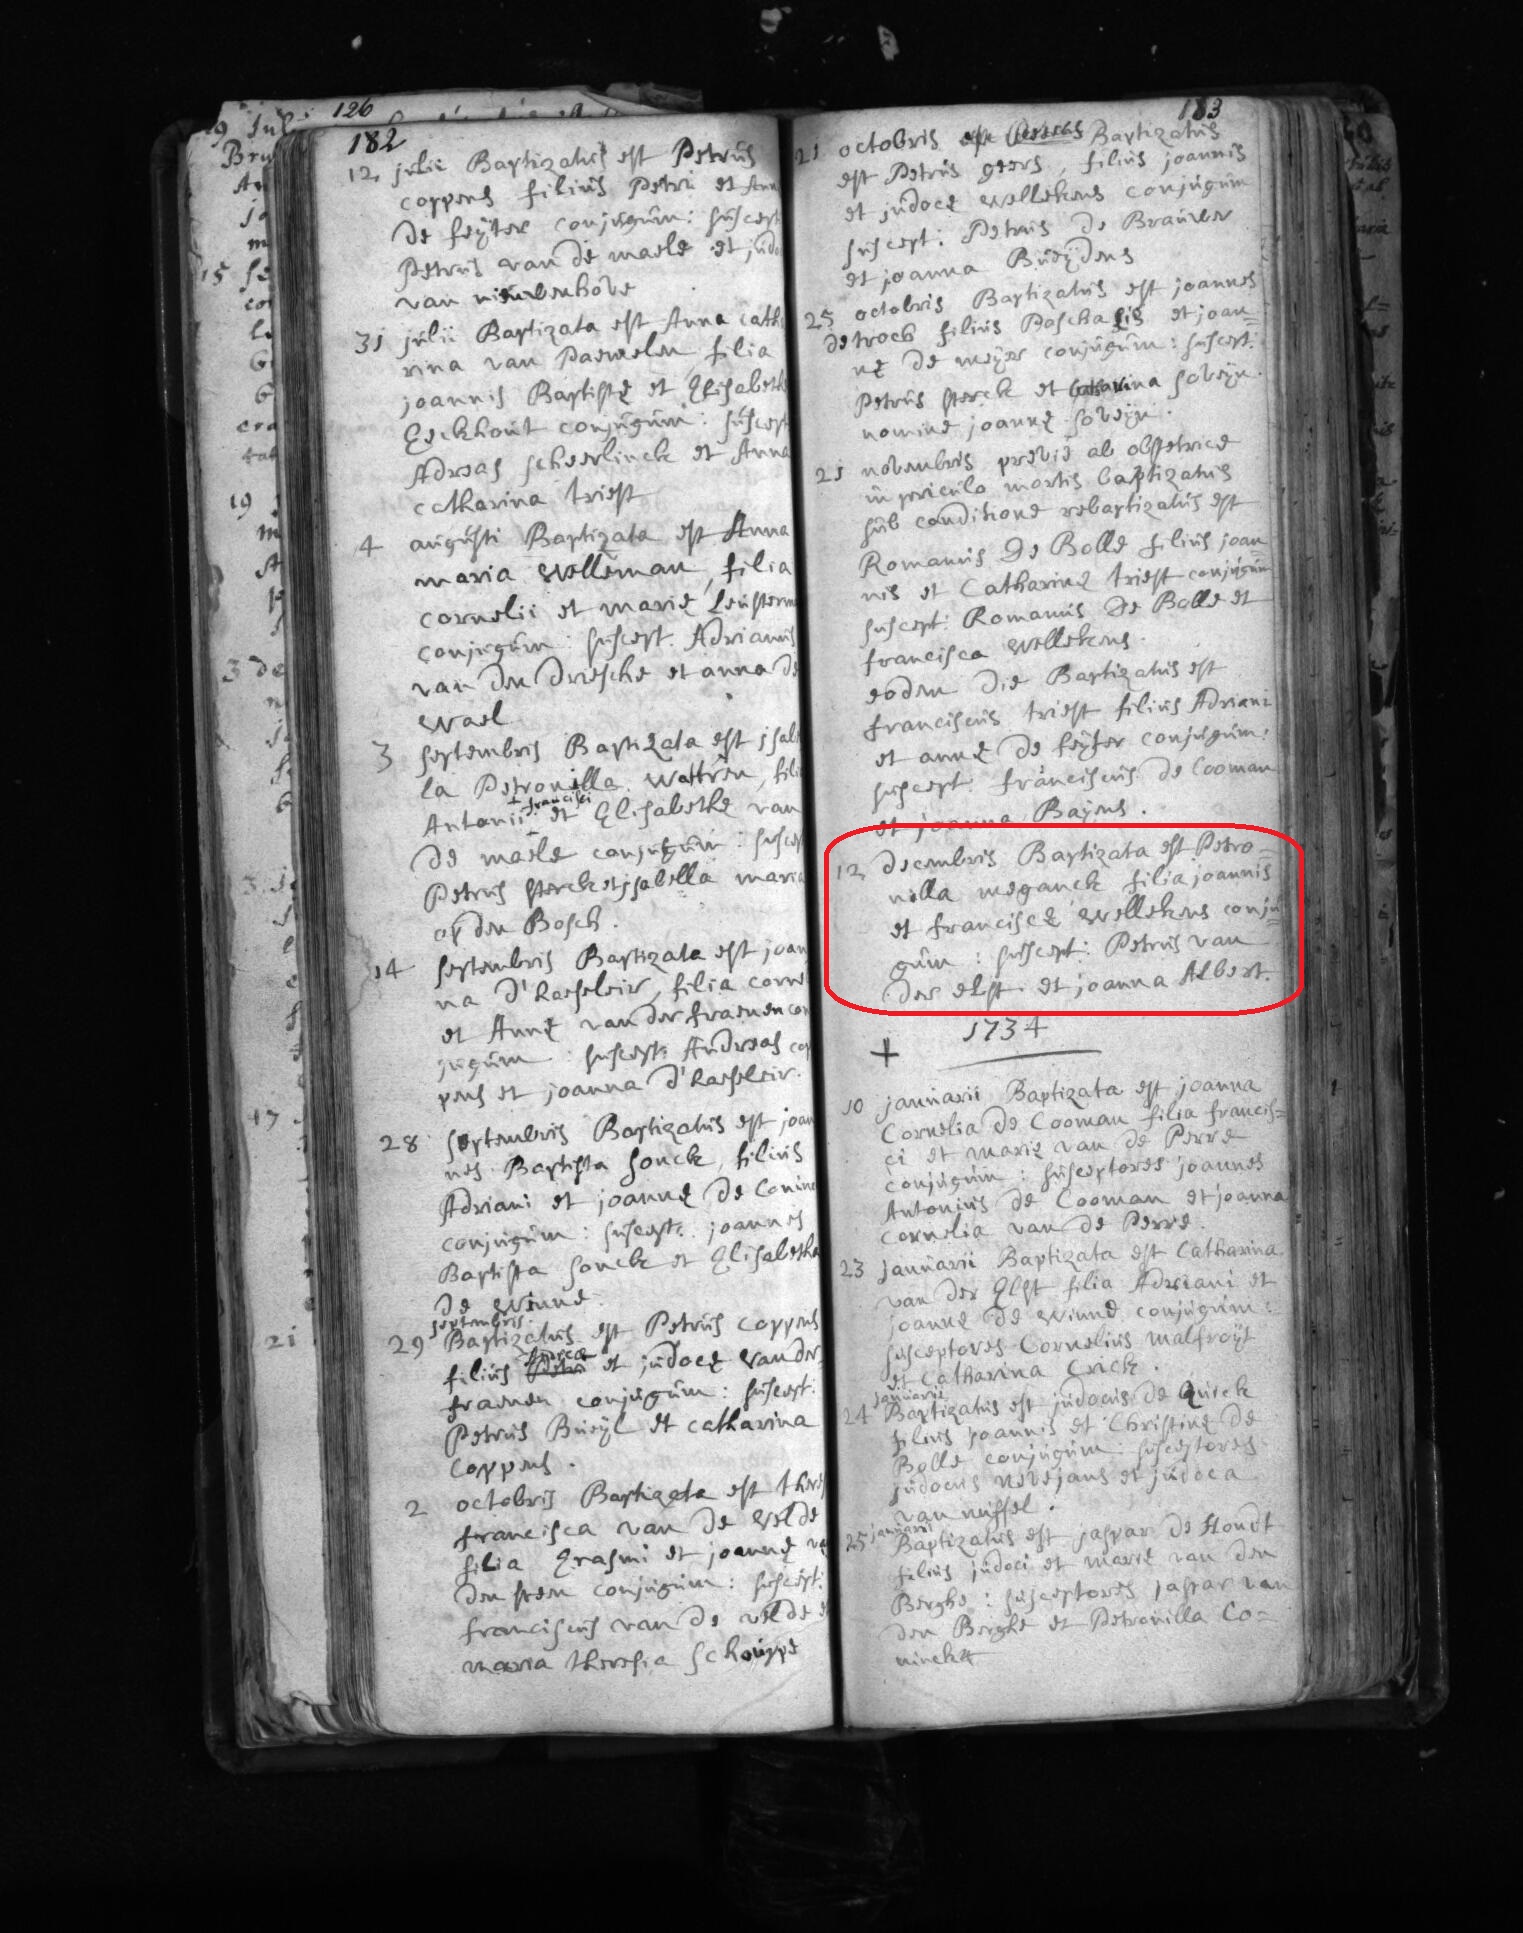 126
182
12 julii Baptizatus est Petrus
coppens filius Petri et Anne
de feyter conjugum: suscept
Petrus van de maele et judo
van nieuwenhove
31 julii Baptizata est Anna cathe
rina van Paemelen filia
joannis Baptistę et Elisabethę
Eeckhout conjugum: suscept
Adreas scheerlinck et Anna
catharina triest
4 augusti Baptizata est Anna
maria Welleman, filia
cornelii et marię
conjugum: suscept. Adrianus
van den driesche et anna de
wael
3 septembris Baptizata est jsabel
la Petronilla Wattrén, filia
+ francisci
Antonii et Elisabethę van
de maele conjugum: suscep
Petrus sterck et jsabella maria
op den Bosch.
14 septembris Baptizata est joan
na d'haeseleir, filia corne
et Annę van der fraenen con
jugum: suscept: Andreas cop
pens et joanna d'haeseleir.
28 septembris Baptizatus est joan
nes Baptista sonck, filius
Adriani et joannę de Conin
conjugum: suscept: joannes
Baptista sonck et Elisabetha
de Winne.
septembris
29 Baptizatus est Petrus coppens
Andreæ
filius Petri et judocę van der
fraenen conjugum: suscept:
Petrus Buÿl et catharina
coppens.
2 octobris Baptizata est there
francisca van de welde
filia Erasmi et joannę va
den steen conjugum: suscept:
franciscus van de velde et
maria theresia schouppe
183
21 octobris est Petrus Baptizatus
est Petrus geers, filius joannis
et judocę wellekens conjugum
suscept: Petrus de Brauwer
et joanna Bueÿdens
25 octobris Baptizatus est joannes
detroch filius Paschasis et joan=
nę de meyer conjugum: suscept:
Petrus sterck et catharina soveijn
nomine joannę soveijn.
21 novembris previe ab obstetrice
in periculo mortis baptizatus
sub conditione rebaptizatus est
Romanus De Bolle filius joan=
nis et Catharinę triest conjugum
suscept: Romanus De Bolle et
francisca wellekens.
eodem die Baptizatus est
franciscus triest filius Adriani
et annę de feyter conjugum:
suscept: franciscus de Cooman
et joanna Baÿens.
12 decembris Baptizata est Petro=
nilla meganck filia joannis
et franciscę wellekens conju=
gum: suscept: Petrus van
der elst et joanna Albert.
1734
+
10 januarii Baptizata est joanna
Cornelia de Cooman filia francis=
ci et marię van de Perre
conjugum: susceptores joannes
Antonius de Cooman et joanna
cornelia van de Perre.
23 januarii Baptizata est Catharina
van der Elst filia Adriani et
joannę de winne conjugum:
susceptores Cornelius malfroÿt
et Catharina Crick.
januarii
24 Baptizatus est judocus de Quick
filius joannis et Christinę de
Bolle conjugum: susceptores
judocus nevejans et judoca
van nuffel.
januarii
25 Baptizatus est jaspar de Hondt
filius judoci et marię van den
Berghe: susceptores jaspar van
den Berghe et Petronilla Co=
ninckx